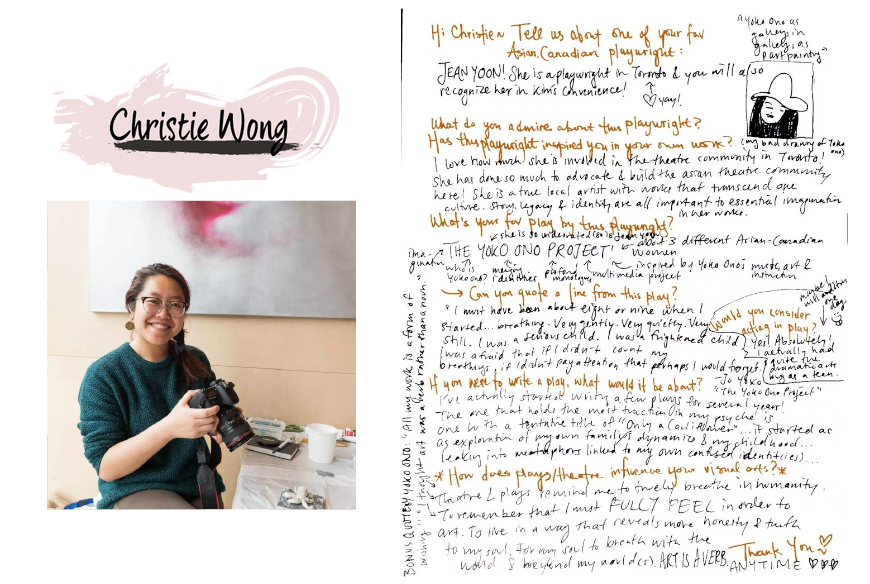 Christie Wong
Hi Christie~ Tell us about one of your fav
Asian.Canadian playwright:
JEAN YOON! She is a playwright in Toronto & you will also
recognize her in Kim's Convenience!
yay!
"Yoko Ono as
gallery, in
gallery, as
part painting"
(my bad drawing of Yoko
Ono)
What do you admire about this playwright?
Has this playwright inspired you in your own work?
I love how much she is involved in the theatre community in Toronto!
She has done so much to advocate & build the asian theatre community
here! She is a true local artist with works that transcend one
culture. Story, legacy & identity are all important to essential imagination
in her works.
What's your fav play by this playwright?
she is so underrated (so is Jean Yoon)
THE YOKO ONO PROJECT!
about 3 different Asian-Canadian
women
imagination
who is
Yoko Ono?
merging
identities
profound
monologues
multimedia project
inspired by Yoko Ono's music, art &
instruction
Can you quote a line from this play?
"I must have been about eight or nine when I
started... breathing. Very gently. Very quietly. Very
still. I was a serious child. I was a frightened child
I was afraid that if I didn't count my
breathings, if I didn't pay attention that perhaps I would forget
- Jo Yoko
"The Yoko Ono Project"
Would you consider
acting in play?
Yes! Absolutely!
I actually had
quite the
dramatic arts
as a teen.
maybe I
one
day
If you were to write a play, what would it be about?
I've actually started writing a few plays for several years!
The one that holds the most traction in my psyche is
one with a tentative title of "Only a Cauliflower"... it started as
as exploration of my own family's dynamics & my childhood...
leaking into metaphors linked to my own confused identit(ies)...
*How does plays/theatre influence your visual arts?*
Theatre & plays remind me to truely breathe in humanity.
To remember that I must FULLY FEEL in order to
art. To live in a way that reveals more honesty & truth
to my soul. For my soul to breath with the
world & beyond my world(s). ART IS A VERB.
Thank You
ANYTIME
BONUS QUOTE BY YOKO ONO: "All my work is a form of
wishing" "I thought art was a verb rather than a noun."